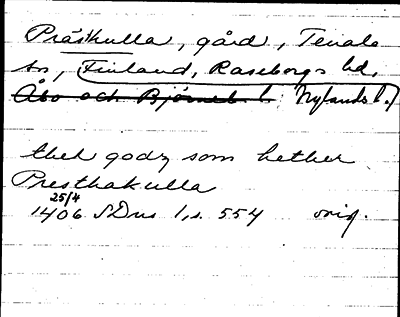 Präskulla, gård, Tenala
sn, Finland, Raseborgs hd,
Åbo och Björneb. l. Nylands l.)
thet godz som hether
Presthakulla
25/4
1406 SDns 1, s. 554 orig.